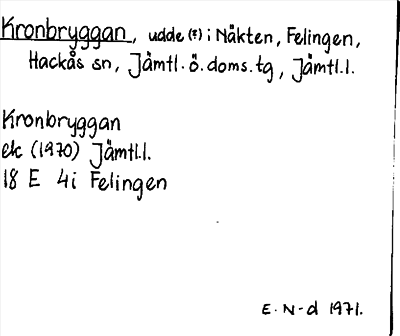 Kronbryggan, udde (?) i Näkten, Felingen,
Hackås sn, Jämtl. ö. doms. tg, Jämtl. l.
Kronbryggan
ek (1970) Jämtl. l.
18 E 4i Felingen
E. N-d 1971.